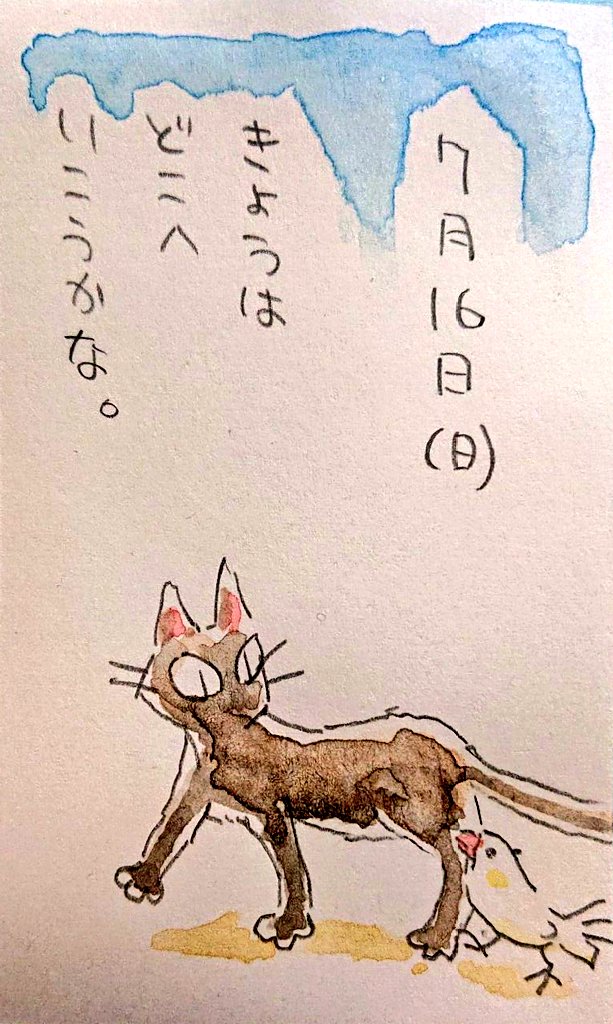 7月16日(日)
きょうは
どこへ
いこうかな。